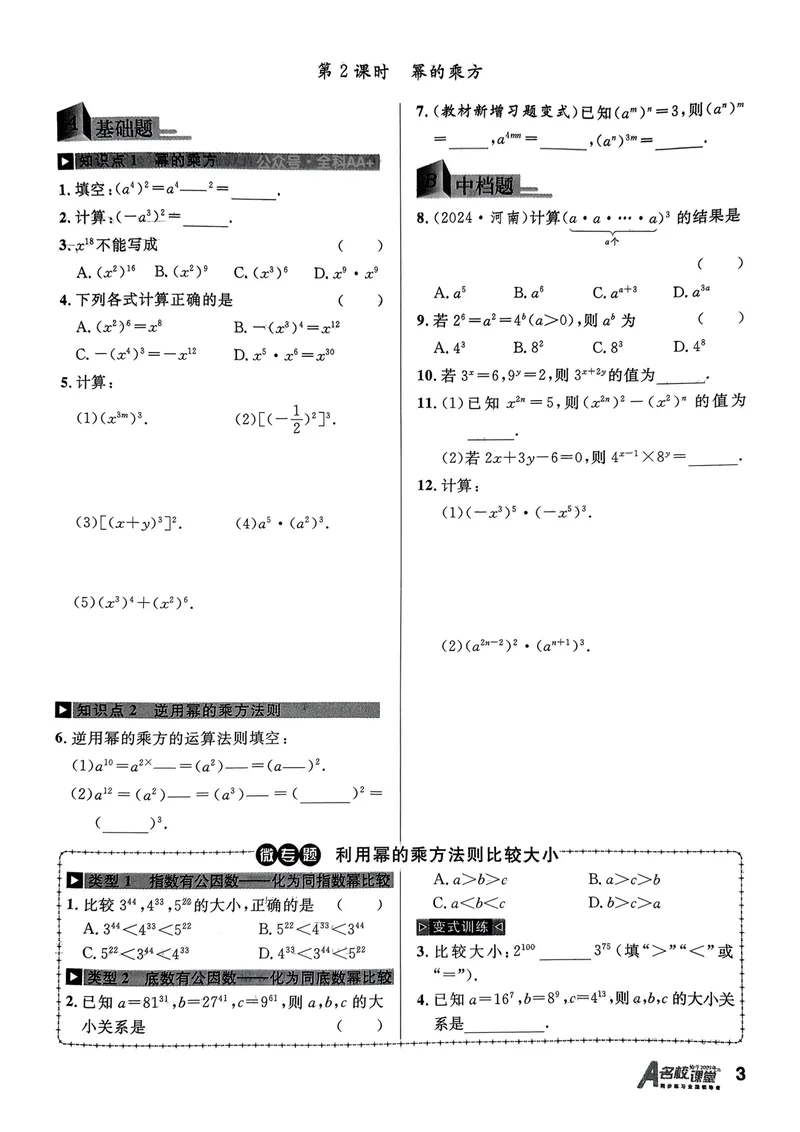 第2课时 幂的乘方
A 基础题
知识点1 幂的乘方 公众号·全科AA+
1. 填空:(a⁴)²=a⁴——²=_____.
2. 计算:(-a³)²=_____.
3. x¹⁸不能写成 ( )
A. (x²)¹⁶ B. (x²)⁹ C. (x³)⁶ D. x⁹·x⁹
4. 下列各式计算正确的是 ( )
A. (x²)⁶=x⁸ B. -(x³)⁴=x¹²
C. -(x⁴)³=-x¹² D. x⁵·x⁶=x³⁰
5. 计算:
(1)(x³ᵐ)³. (2)[(-1/2)²]³.
(3)[(x+y)³]². (4)a⁵·(a²)³.
(5)(x³)⁴+(x²)⁶.
知识点2 逆用幂的乘方法则
6. 逆用幂的乘方的运算法则填空:
(1)a¹⁰=a²ˣ——=(a²)——=(a——)².
(2)a¹²=(a²)——=(a³)——=(_____)²=
(_____)³.
7. (教材新增习题变式)已知(aᵐ)ⁿ=3,则(aⁿ)ᵐ
=_____,a⁴ᵐⁿ=_____,(aⁿ)³ᵐ=_____.
B 中档题
8. (2024·河南)计算(a·a·…·a)³的结果是
a个
( )
A. a⁵ B. a⁶ C. aᵃ⁺³ D. a³ᵃ
9. 若2⁶=a²=4ᵇ(a>0),则aᵇ为 ( )
A. 4³ B. 8² C. 8³ D. 4⁸
10. 若3ˣ=6,9ʸ=2,则3ˣ⁺²ʸ的值为_____.
11. (1)已知x²ⁿ=5,则(x²ⁿ)²-(x²)ⁿ的值为
_____.
(2)若2x+3y-6=0,则4ˣ⁻¹×8ʸ=_____.
12. 计算:
(1)(-x³)⁵·(-x⁵)³.
(2)(a²ⁿ⁻²)²·(aⁿ⁺¹)³.
微专题 利用幂的乘方法则比较大小
类型1 指数有公因数——化为同指数幂比较
1. 比较3⁴⁴,4³³,5²²的大小,正确的是 ( )
A. 3⁴⁴<4³³<5²² B. 5²²<4³³<3⁴⁴
C. 5²²<3⁴⁴<4³³ D. 4³³<3⁴⁴<5²²
类型2 底数有公因数——化为同底数幂比较
2. 已知a=81³¹,b=27⁴¹,c=9⁶¹,则a,b,c的大
小关系是 ( )
A. a>b>c B. a>c>b
C. a<b<c D. b>c>a
变式训练
3. 比较大小:2¹⁰⁰_____3⁷⁵(填“>”“<”或
“=”).
4. 已知a=16⁷,b=8⁹,c=4¹³,则a,b,c的大小关
系是_____.
A名校课堂 3